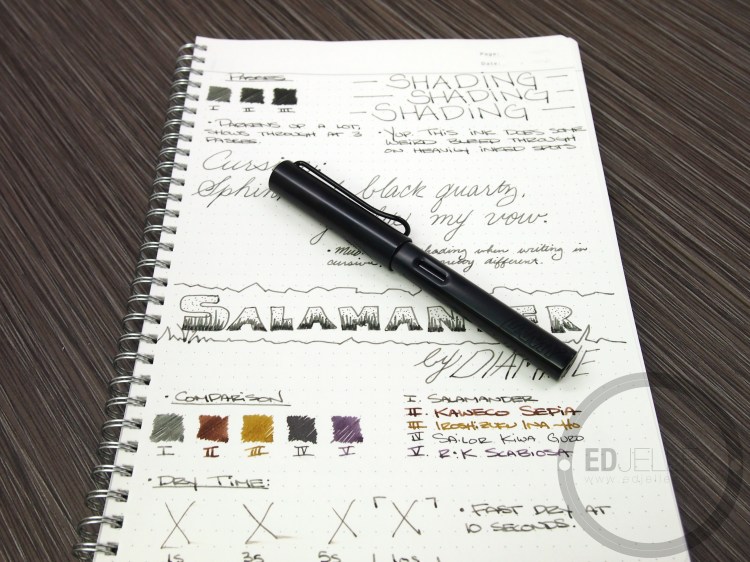 Page:
Date:
PASSES
I II III
• DARKENS UP A LOT,
SHOWS THROUGH AT 3
PASSES.
– SHADING –
– SHADING –
– SHADING –
• YUP. THIS INK DOES SOME
WEIRD BLEED THROUGH
ON HEAVILY INKED SPOTS
Sphin black quartz,
my vow.
shading when writing in
cursive. different.
SALAMANDER
by DIAM E
• COMPARISON
I II III IV V
I. SALAMANDER
II. KAWECO SEPIA
III. IROSHIZUKU INA-HO
IV. SAILOR KIWA GURO
V. R·K SCABIOSA
• DRY TIME:
X X X X
1s 3s 5s 10s
• FAST DRY AT
10 SECONDS.
EDJELLE
www.edjelle